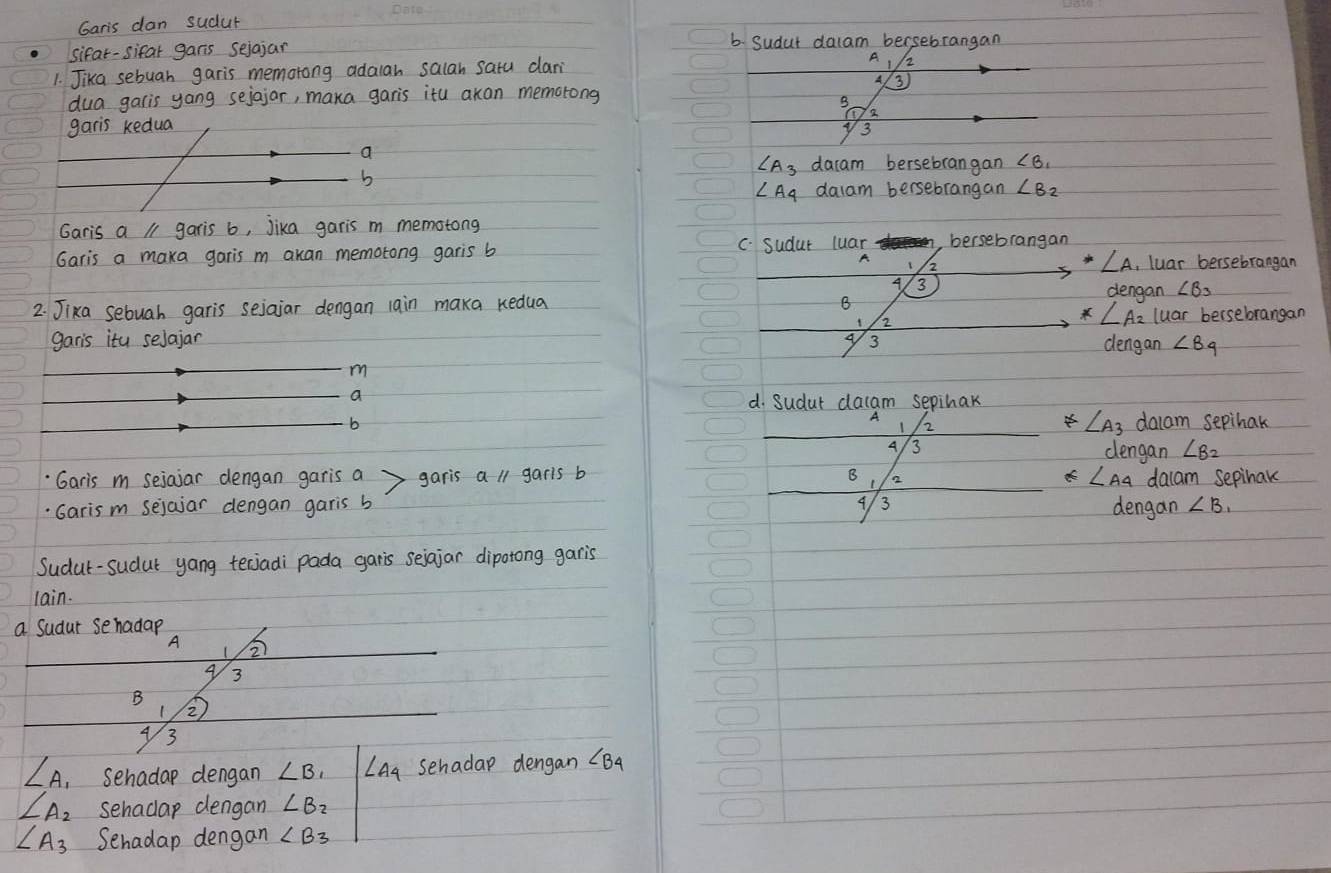 Date
Garis dan sudut
• sifat-sifat garis sejajar
1. Jika sebuah garis memotong adalah salah satu dari
dua garis yang sejajar, maka garis itu akan memotong
garis kedua
a
b
Garis a // garis b, Jika garis m memotong
Garis a maka garis m akan memotong garis b
2. Jika sebuah garis sejajar dengan lain maka kedua
garis itu sejajar
m
a
b
• Garis m sejajar dengan garis a > garis a // garis b
• Garis m sejajar dengan garis b
Sudut-sudut yang terjadi pada garis sejajar dipotong garis
lain.
a sudut sehadap
A
1 2
4 3
B
1 2
4 3
∠A1 sehadap dengan ∠B1
∠A2 sehadap dengan ∠B2
∠A3 Sehadap dengan ∠B3
∠A4 sehadap dengan ∠B4
Date:
b. Sudut dalam bersebrangan
A 1 2
4 3
B
1 2
4 3
∠A3 dalam bersebrangan ∠B1
∠A4 dalam bersebrangan ∠B2
c. Sudut luar bersebrangan
A
1 2
4 3
B
1 2
4 3
* ∠A1 luar bersebrangan
dengan ∠B3
* ∠A2 luar bersebrangan
dengan ∠B4
d. Sudut dalam sepihak
A
1 2
4 3
B
1 2
4 3
* ∠A3 dalam sepihak
dengan ∠B2
* ∠A4 dalam sepihak
dengan ∠B1